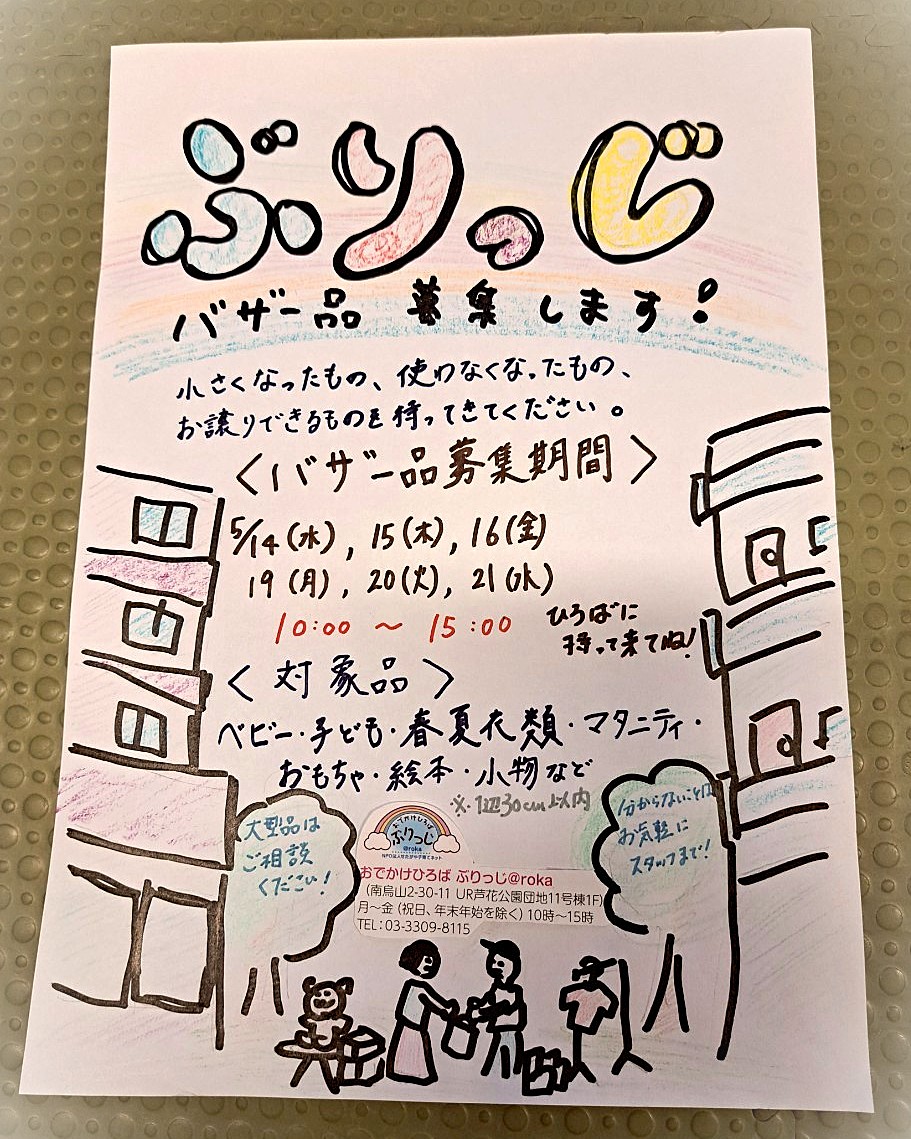 ぶりっじ
バザー品 募集します!
小さくなったもの、使わなくなったもの、
お譲りできるものを持ってきてください。
<バザー品募集期間>
5/14(水), 15(木), 16(金)
19(月), 20(火), 21(水)
10:00 〜 15:00
ひろばに
持って来てね!
<対象品>
ベビー・子ども・春夏衣類・マタニティ・
おもちゃ・絵本・小物など
※1辺30cm以内
大型品は
ご相談
ください!
分からないことは
お気軽に
スタッフまで!
おでかけひろば
ぶりっじ
@roka
NPO法人せたがや子育てネット
おでかけひろば ぶりっじ@roka
(南烏山2-30-11 UR芦花公園団地11号棟1F)
月〜金(祝日、年末年始を除く)10時〜15時
TEL:03-3309-8115